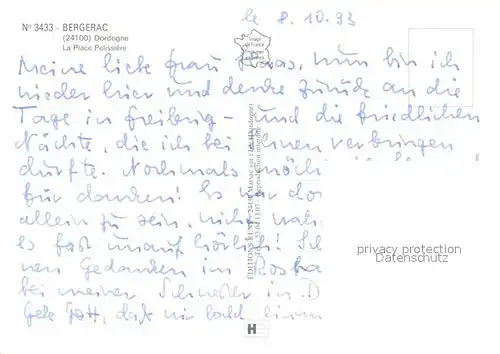 le 8.10.93
Nº 3433 - BERGERAC
(24100) Dordogne
La Place Pelissière
Image de France
Meine liebe Frau Haas, nun bin ich
wieder hier und denke zurück an die
Tage in Freiburg - und die friedlichen
Nächte, die ich bei Ihnen verbringen
durfte. Nochmals möch
für danken! Es war do
allein zu sein, nicht wah
es fast unaufhörlich!
nen Gedanken im
bei meiner Schwester in D
Gebe Gott, daß wir bald einen
EDITIONS RENÉ
privacy protection
Datenschutz
H